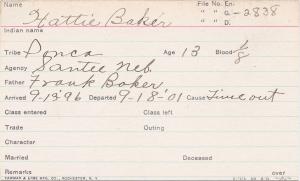 Name File No. En.
Hattie Baker " " D. 2838
Indian name
Tribe Ponca Age 13 Blood 1/8
Agency Santee Neb.
Father Frank Baker
Arrived 9-13-'96 Departed 9-18-'01 Cause Time out
Class entered Class left
Trade Outing
Character
Married Deceased
Remarks
over